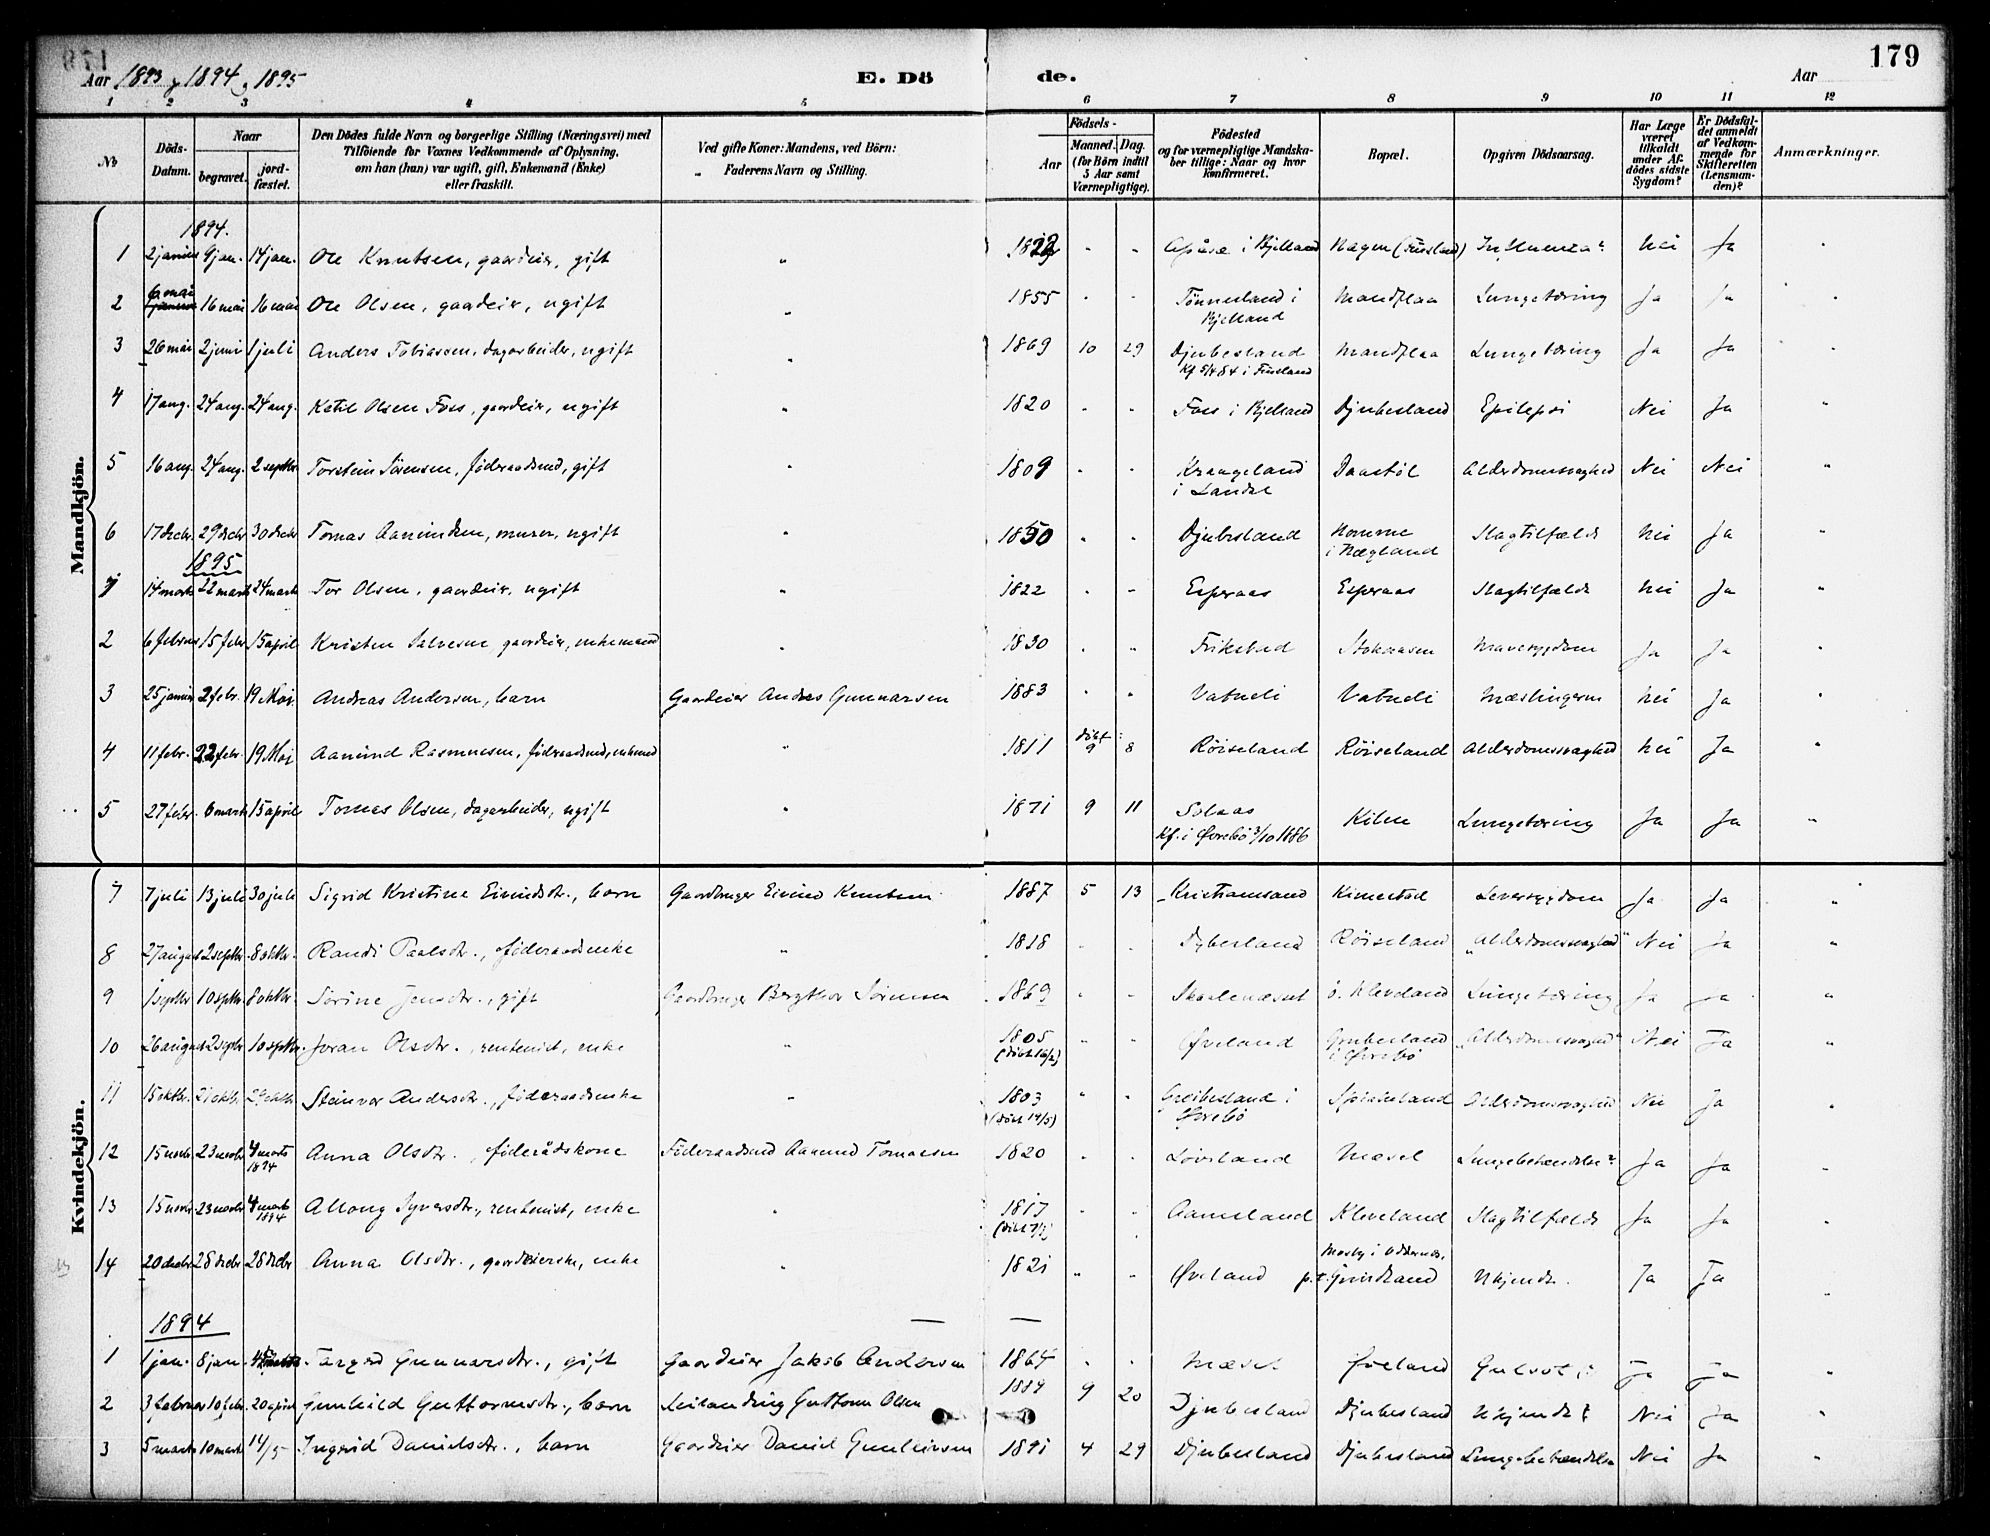 179
Aar 1893, 1894, 1895 E. Dö de. Aar
1 2 3 4 5 6 7 8 9 10 11 12
No Döds-Datum. Naar begravet. jord-fæstet. Den Dödes fulde Navn og borgerlige Stilling (Næringsvei) med Tilföiende for Voxnes Vedkommende af Oplysning, om han (hun) var ugift, gift, Enkemand (Enke) eller fraskilt. Ved gifte Koner: Mandens, ved Börn: „ Faderens Navn og Stilling. Födsels- Aar Maaned. Dag. (for Börn indtil 5 Aar samt Værnepligtige). Födested og for værnepligtige Mandska-ber tillige: Naar og hvor konfirmeret. Bopæl. Opgiven Dödsaarsag. Har Læge været tilkaldt under Af-dödes sidste Sygdom? Er Dödsfal-det anmeldt af Vedkom-mende for Skifteretten (Lensman-den)? Anmærkninger.
Mandkjön.
1894.
1 2 januar 9 jan. 14 jan. Ole Knutsen, gaardeier, gift „ „ „ Apåsæ i Bjelland Hagen (Finsland) Influenza? Nei Ja
2 6 mai 16 mai 16 mai Ole Olsen, gaardeier, ugift „ 1855 „ „ Tönnesland i Bjelland Mandflaa Lungetæring Ja Ja „
3 26 mai 2 juni 1 juli Anders Tobiassen, dagarbeider, ugift „ 1869 10 29 Djubesland Kf 5/4 84 i Finsland Mandflaa Lungetæring Ja Ja „
4 17 aug. 24 aug. 24 aug. Ketil Olsen Foss, gaardeier, ugift „ 1820 „ „ Foss i Bjelland Djubesland Epilepsi Nei Ja „
5 16 aug. 24 aug. 2 septbr Torstein Sørensen, føderaadsmd, gift „ 1809 „ „ Kraageland i Laudal Daastöl Alderdomssvaghed Nei Nei „
6 17 decbr. 29 decbr 30 decbr Tomas Aanundsen, murer, ugift „ 1850 „ „ Djubesland Homme i Hægland Slagtilfælde Nei Ja „
1895
1 14 marts 22 marts 24 marts Tor Olsen, gaardeier, ugift „ 1822 „ „ Esperaas Esperaas Slagtilfælde Nei Ja „
2 6 februar 15 febr 15 april Kristen Salvesen gaardeier, enkemand „ 1830 „ „ Frikstad Stokaasen Mavesygdom Ja Ja „
3 25 januar 2 febr. 19 Mai Andreas Andersen, barn Gaardeier Anders Gunnarsen 1883 „ „ Vatneli Vatneli Mæslingerne Nei Ja „
4 11 febr. 22 febr. 19 Mai Aanund Rasmussen, føderaadsmd, enkemd „ 1811 døbt: 9 8 Røiseland Røiseland Alderdomssvaghed Nei Ja „
5 27 febr. 6 marts 15 april Tomas Olsen, dagarbeider, ugift „ 1871 9 11 Solaas Kf. i Øvrebö 3/10 1886 Kilen Lungetæring Ja Ja „
Kvindekjön.
7 7 juli 13 juli 30 juli Sigrid Kristine Eivindsdtr., barn Gaardbruger Eivind Knutsen 1887 5 13 Kristiansand Kimestad Leversygdom Ja Ja „
8 27 august 2 septbr. 8 oktbr. Randi Paalsdtr., føderaadsenke „ 1818 „ „ Dybesland Røiseland „Alderdomssvaghed" Nei Ja „
9 1 septbr 10 septbr 8 oktbr. Sørine Jensdtr., gift Gaardbruger Bergthor Sørensen 1869 „ „ Skaalenæset ö. Kleveland Lungetæring Ja Ja „
10 26 august 2 septbr 10 septbr. Joran Olsdtr., rentenist, enke „ 1805 (döbt 16/2) „ „ Øveland Grubesland i Øvrebö „Alderdomssvaghed" Nei Ja „
11 15 oktbr. 21 oktbr. 29 oktbr Steinvor Andersdtr., føderaadsenke „ 1803 (döbt 14/5) „ „ Greibesland i Øvrebö Alderdomssvaghed Nei Ja „
12 15 novbr. 23 novbr. 4 marts 1894 Anna Olsdtr., føderådskone Föderaadsmd Aanund Tomassen 1820 „ „ Løvland Mæsel Lungebetændelse? Ja Ja „
13 15 novbr 23 novbr 4 marts 1894 Allong Syversdtr., rentenist, enke „ 1817 „ „ Aamsland Kleveland Slagtilfælde Ja Ja „
14 20 decbr 28 decbr 28 decbr Anna Olsdtr., gaardeierske, enke „ 1821 „ „ Øveland Mosby i Oddernes, p.t. Grindland Ukjendt. Ja Ja „
1894
1 1 jan. 8 jan. Targerd Gunnarsdtr., gift Gaardeier Jakob Andersen 1864 „ „ Mæsel Øveland Gulsot Ja Ja „
2 3 februar 10 febr. 20 april Gunhild Guttormsdtr., barn Leilanding Guttorm Olsen 1889 9 20 Djubesland Djubesland Ukjendt Nei Ja „
3 5 marts 10 marts 14/5 Ingerid Danielsdtr., barn Gaardeier Daniel Gunleivsen 1891 4 29 Djubesland Djubesland Lungebetændelse Nei Ja „